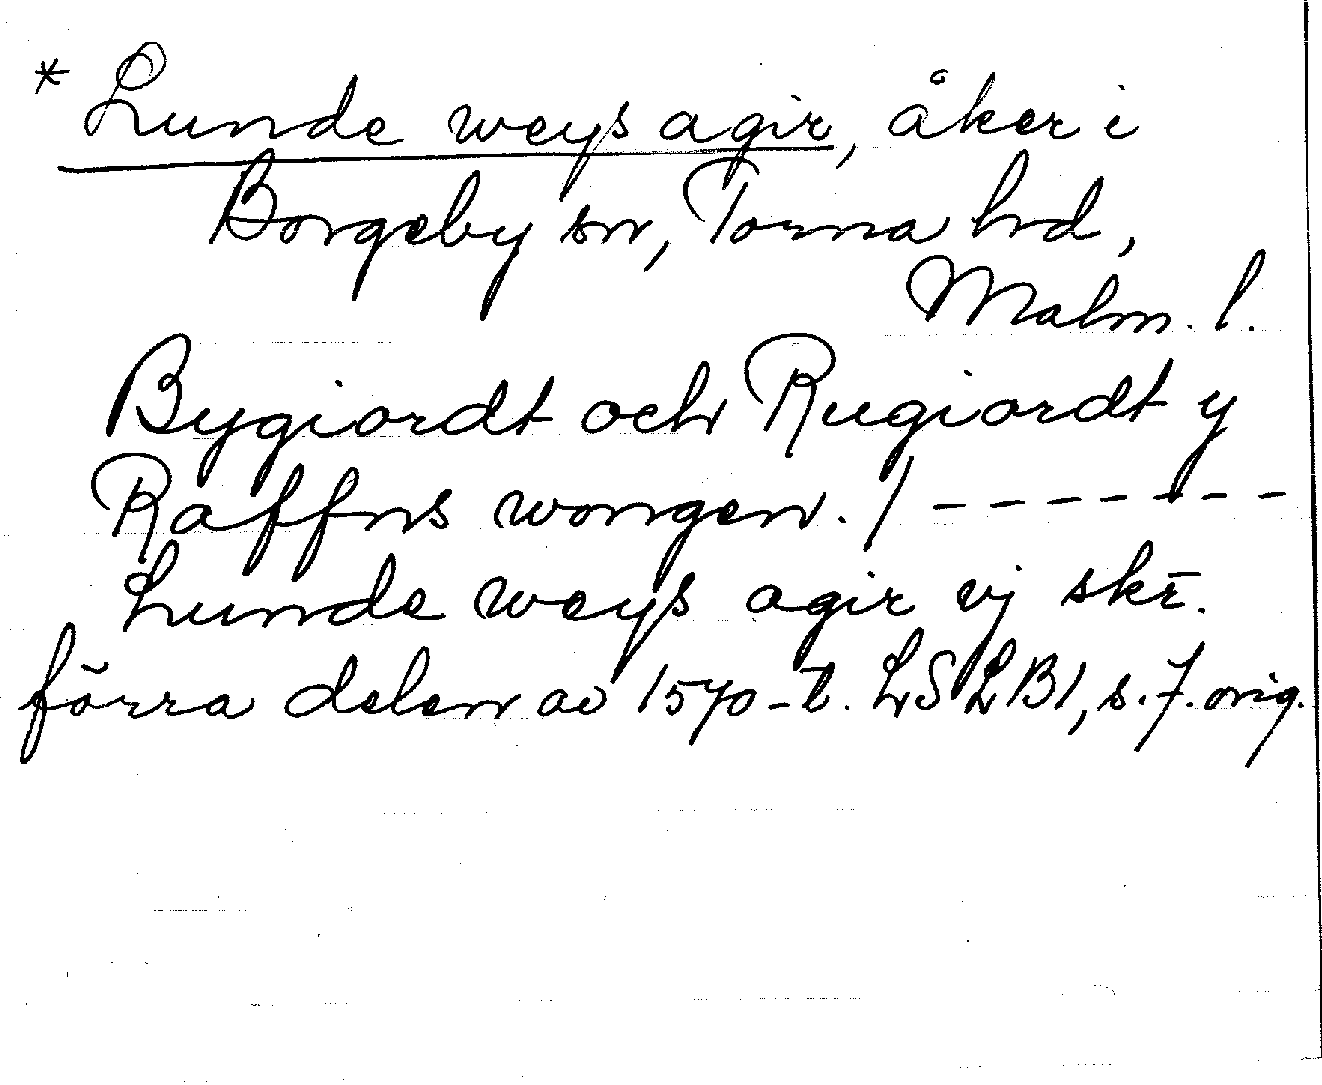 * Lunde weys agir, åker i
Borgeby sn, Torna hd,
Malm. l.
Bygiordt och Rugiordt y
Raffns wongen. / - - - - - - -
Lunde weys agir vj skr̄.
förra delen av 1570-t. LSLB1, s. 7. orig.